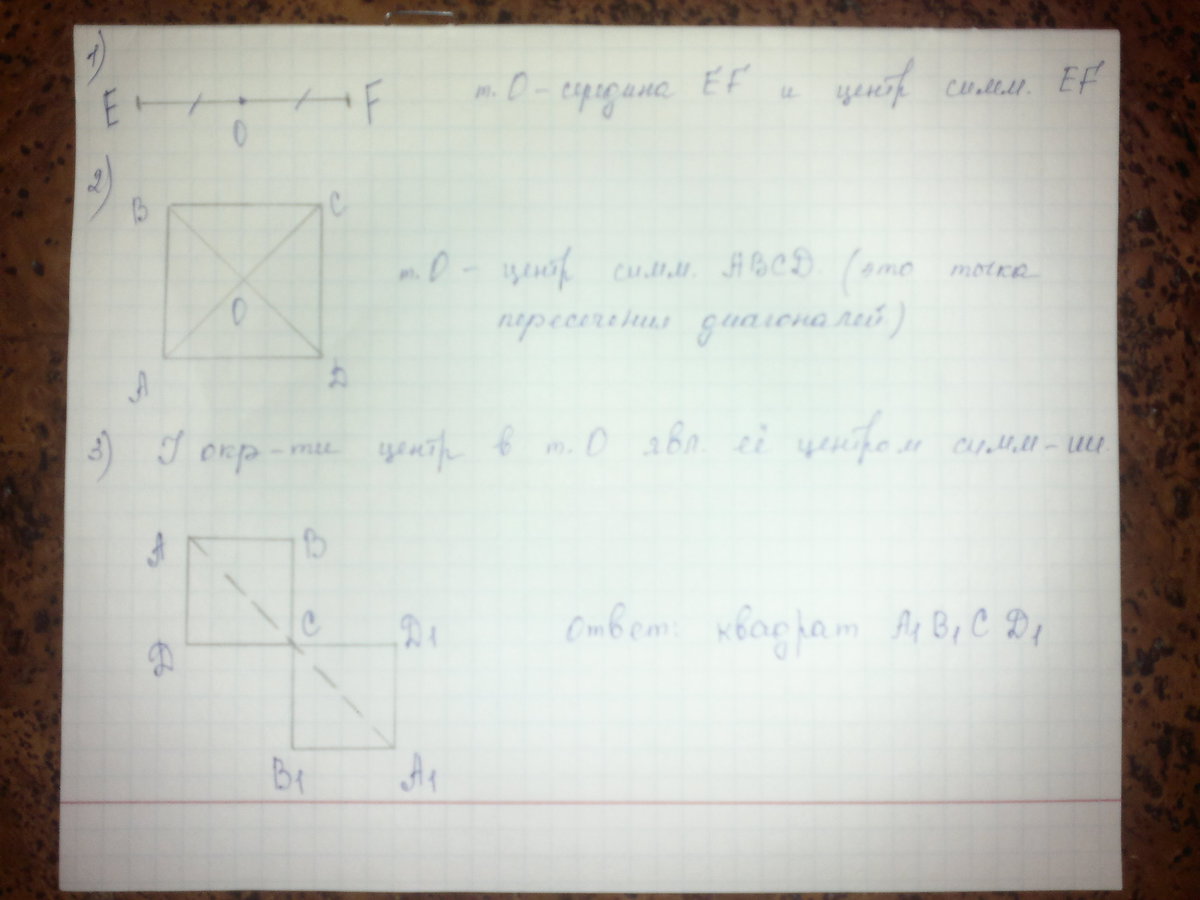 1)
E O F т. О – середина EF и центр симм. EF
2)
B C
O
A D
т. О – центр симм. ABCD. (это точка
пересечения диагоналей)
3) У окр-ти центр в т. О явл. её центром симм-ии.
A B
D C D1
B1 A1
Ответ: квадрат A1 B1 C D1